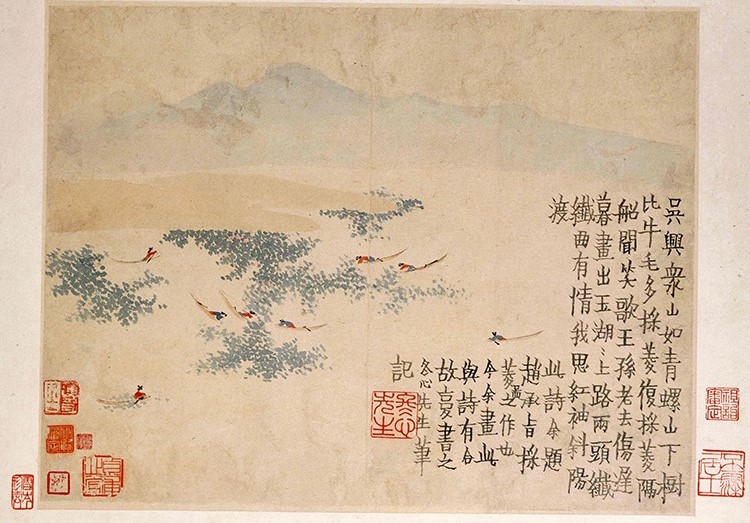 吳興衆山如青螺山下樹
比牛毛多採菱復採菱隔
船聞笑歌王孫老去傷遲
暮畫出玉湖〻上路兩頭纖
纖曲有情我思紅袖斜陽
渡
此詩余題
趙承旨採
菱圖之作也
今余畫此
與詩有合
故書之
冬心先生筆
記
冬心
先生